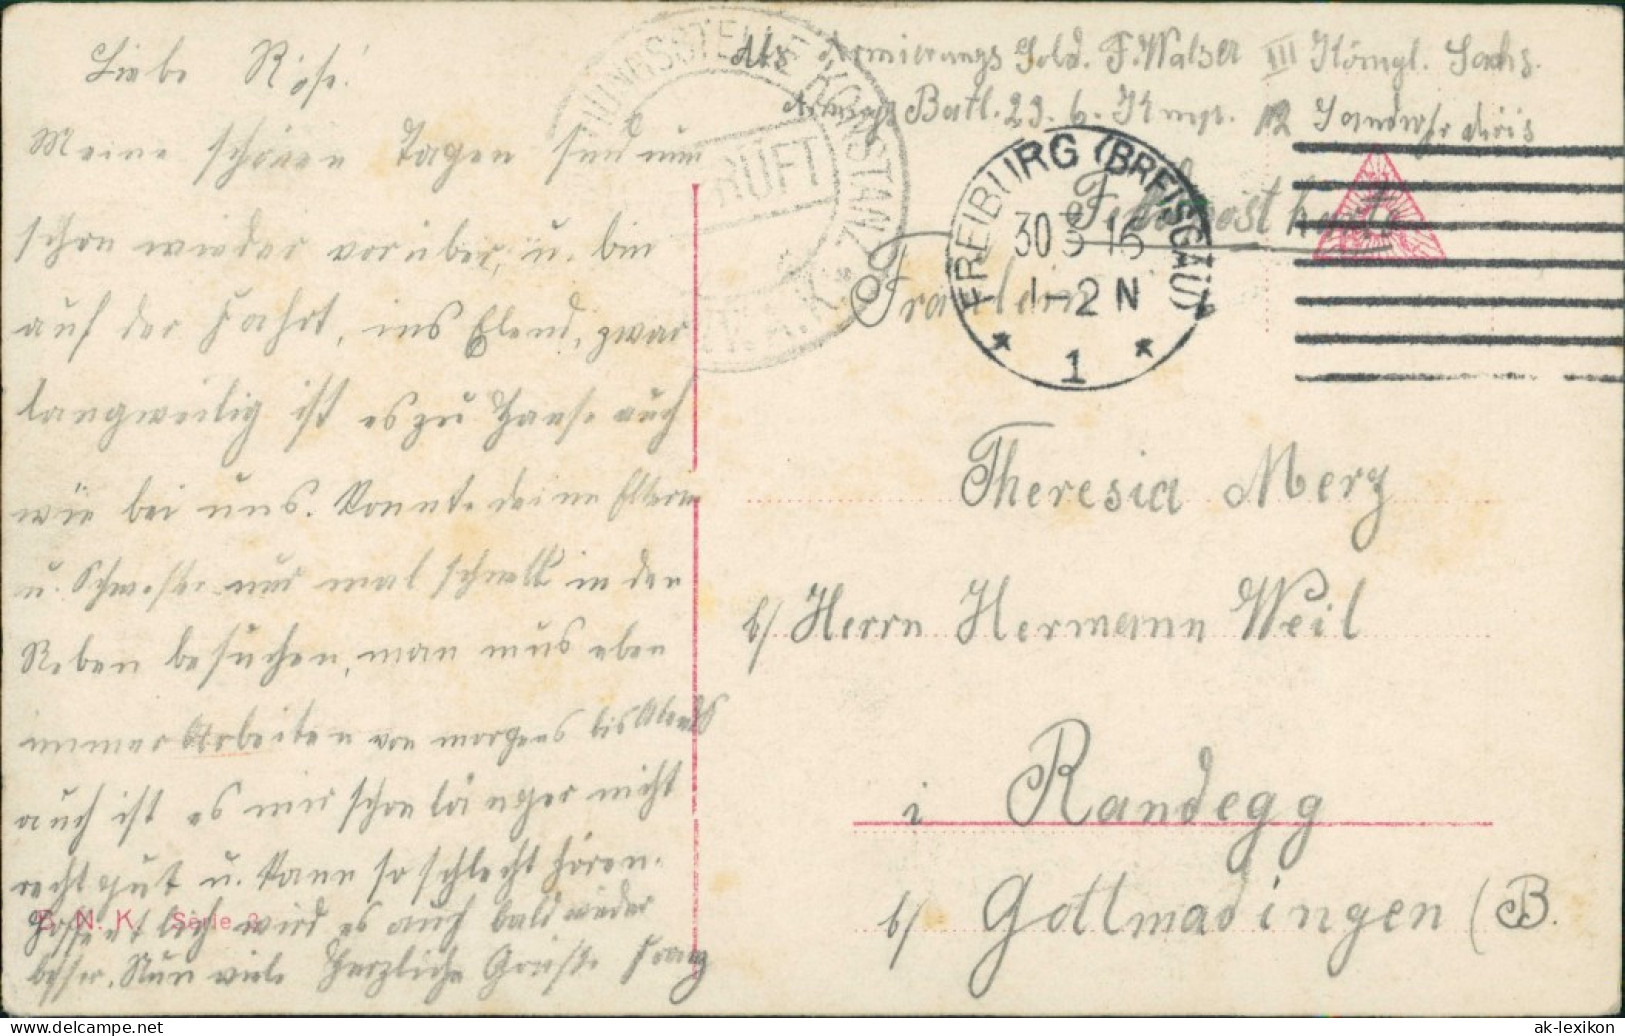 Liebe Rösi!
Meine schönen Tagen sind nun
schon wieder vorüber, u. bin
auf der Fahrt, ins Elend, zwar
langweilig ist es zu Hause auch
wie bei uns. Konnte deine Eltern
u. Schwester nur mal schnell in den
Reben besuchen, man mus eben
immer Arbeiten von morgens bis Abends
auch ist es mir schon länger nicht
recht gut u. kann so schlecht hören.
Hoffentlich wird es auch bald wieder
besser. Nun viele Herzliche Grüße Franz
Serie 3
Abs Armierungs Sold. F. Walser III Königl. Sachs.
Batl. 23. 6. Komp. 12 Landwehr divis
KONSTANZ
FREIBURG (BREISGAU)
30 16
1-2 N
* 1 *
Feldpostkarte
Fräulein
Theresia Merz
b/ Herrn Hermann Weil
i Randegg
b/ Gottmadingen (B.
ak-lexikon